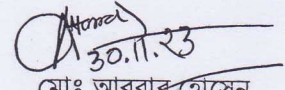 30.11.23
মোঃ আবরার হোসেন